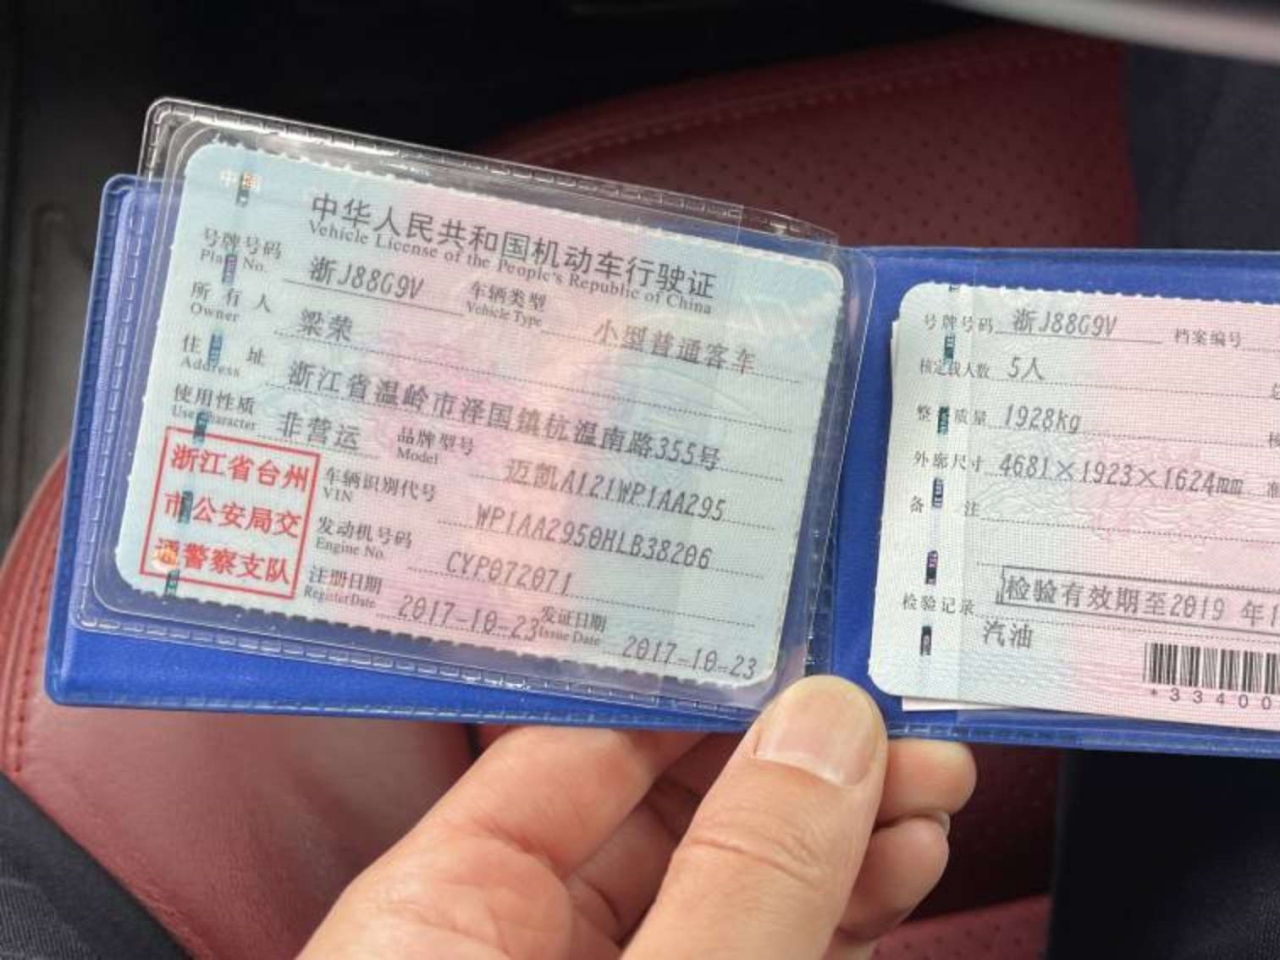 中国
中华人民共和国机动车行驶证
Vehicle License of the People's Republic of China
号牌号码 浙J88G9V 车辆类型 小型普通客车
Plate No. Vehicle Type
所有人 梁荣
Owner
住址 浙江省温岭市泽国镇杭温南路355号
Address
使用性质 非营运 品牌型号 迈凯A121WP1AA295
Use Character Model
浙江省台州
市公安局交
通警察支队
车辆识别代号 WP1AA2950HLB38206
VIN
发动机号码 CYP072071
Engine No.
注册日期 2017-10-23 发证日期 2017-10-23
Register Date Issue Date
号牌号码 浙J88G9V 档案编号
核定载人数 5人
整备质量 1928kg
外廓尺寸 4681×1923×1624mm 准
备注
检验有效期至2019 年1
检验记录
汽油
*33400